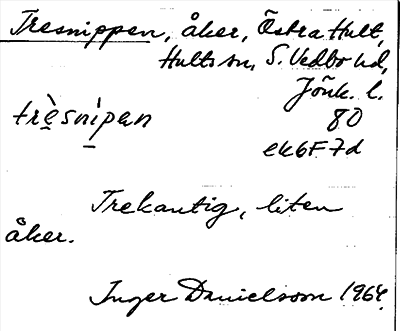 Tresnippen, åker, Östra Hult,
Hults sn, S. Vedbo hd,
Jönk. l.
trèsnipan 80
ek6F7d
Trekantig, liten
åker.
Inger Danielsson 1964.